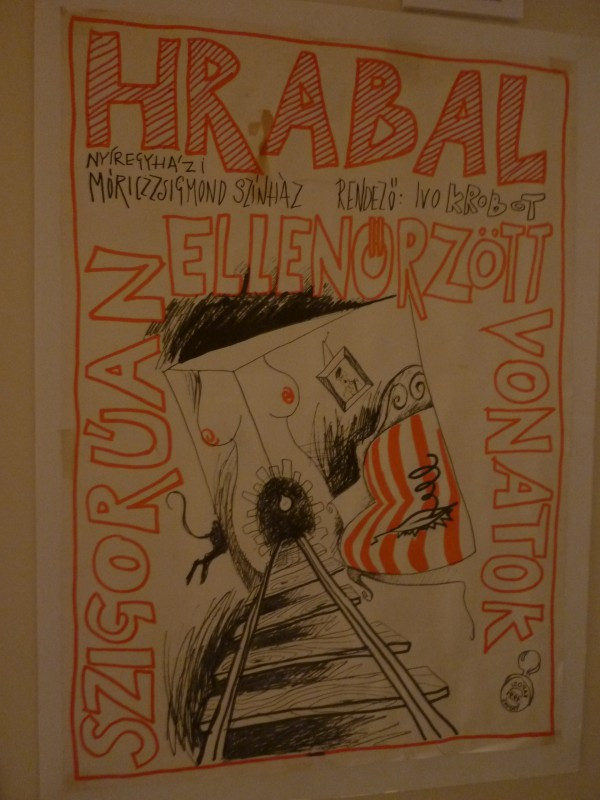 HRABAL
NYÍREGYHÁZI
MÓRICZZSIGMOND SZÍNHÁZ
RENDEZŐ: IVO KROBOT
SZIGORÚAN
ELLENŐRZÖTT
VONATOK